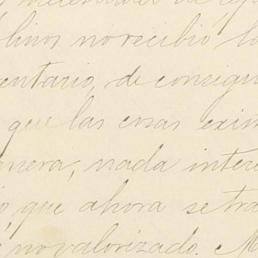 linos no recibió lo
entario, de consigu
que las cosas exim
nera, nada intere
o que ahora se tra
no valorizado. M